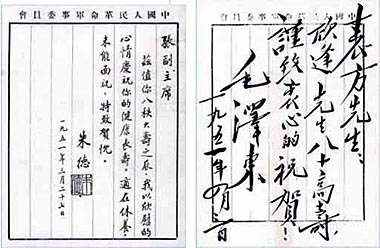 中國人民革命軍事委員會
張副主席
茲值你八秩大壽之辰,我以欣慰的
心情慶祝你的健康長壽。適在休養,
未能面祝,特致賀忱。
朱德
一九五一年三月二十七日
中國人民革命軍事委員會
表方先生:
欣逢先生八十高壽,
謹致衷心的祝賀!
毛澤東
一九五一年四月